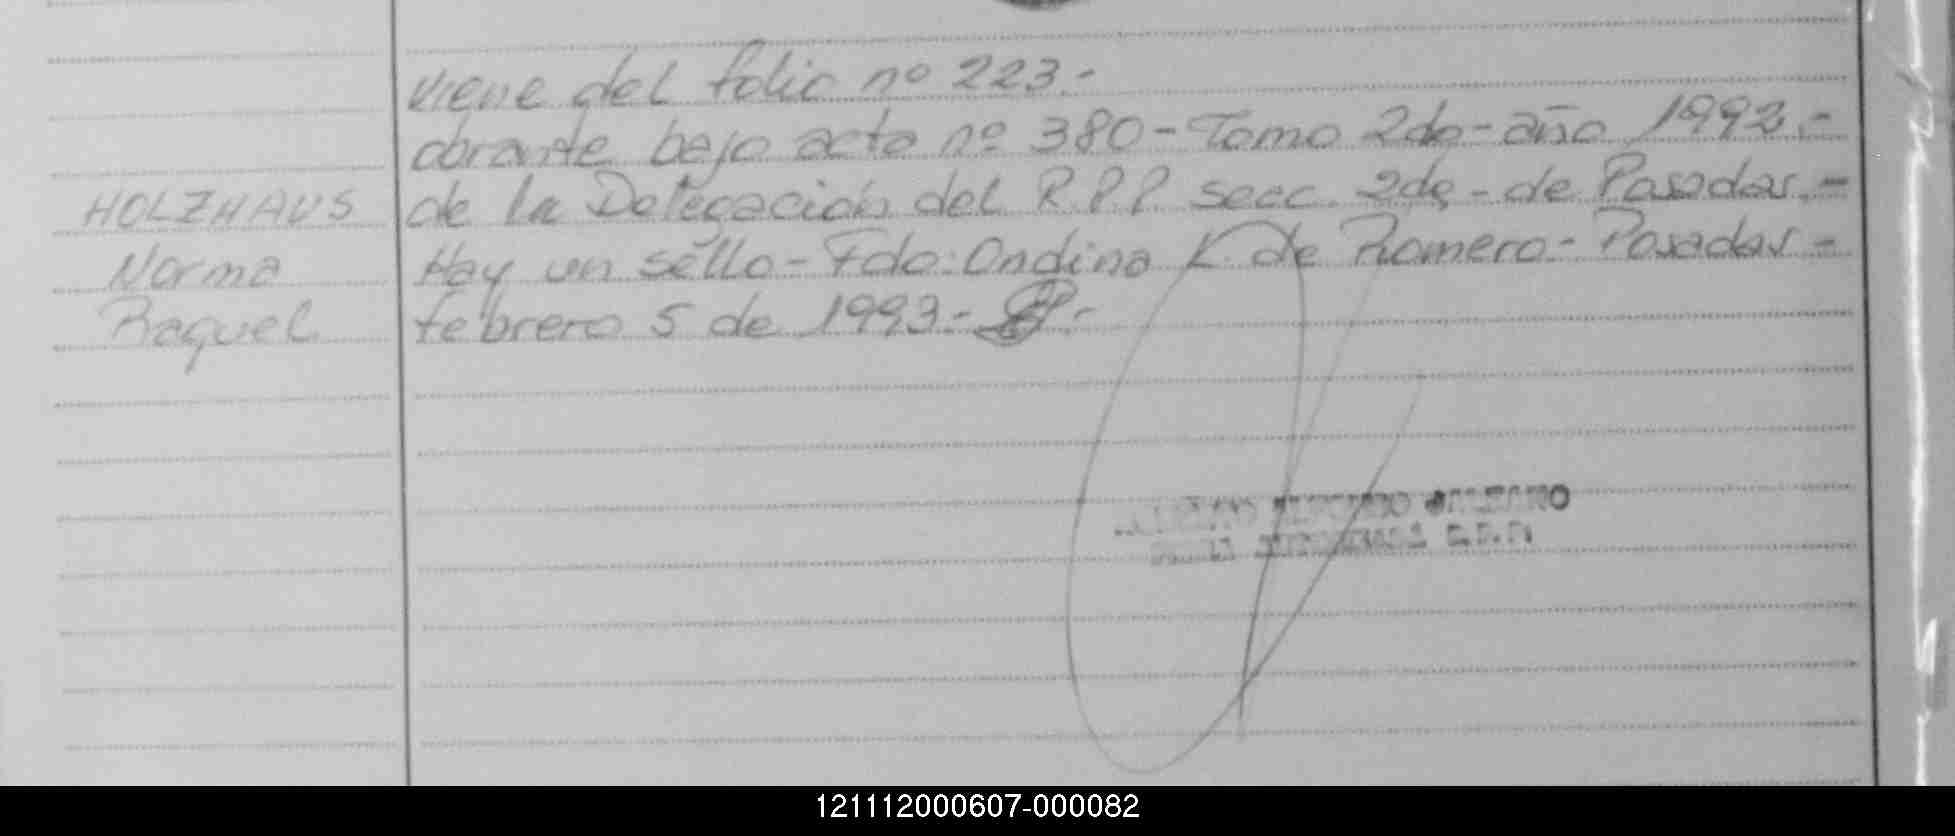 viene del folio nº 223.-
obrante bajo acta nº 380 - Tomo 2do - año 1992.-
HOLZHAUS
Norma
Raquel
de la Delegación del R.P.P. secc. 2da - de Posadas.-
Hay un sello - Fdo: Ondina K. de Romero - Posadas -
febrero 5 de 1993.-
121112000607-000082